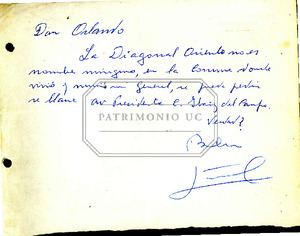 Don Orlando
La Diagonal Oriente no es
nombre ninguno, en la comuna donde
vivió y murió un General, se puede pedir
se llame Av Presidente C. Ibáñez del Campo.
Verdad?
PATRIMONIO UC